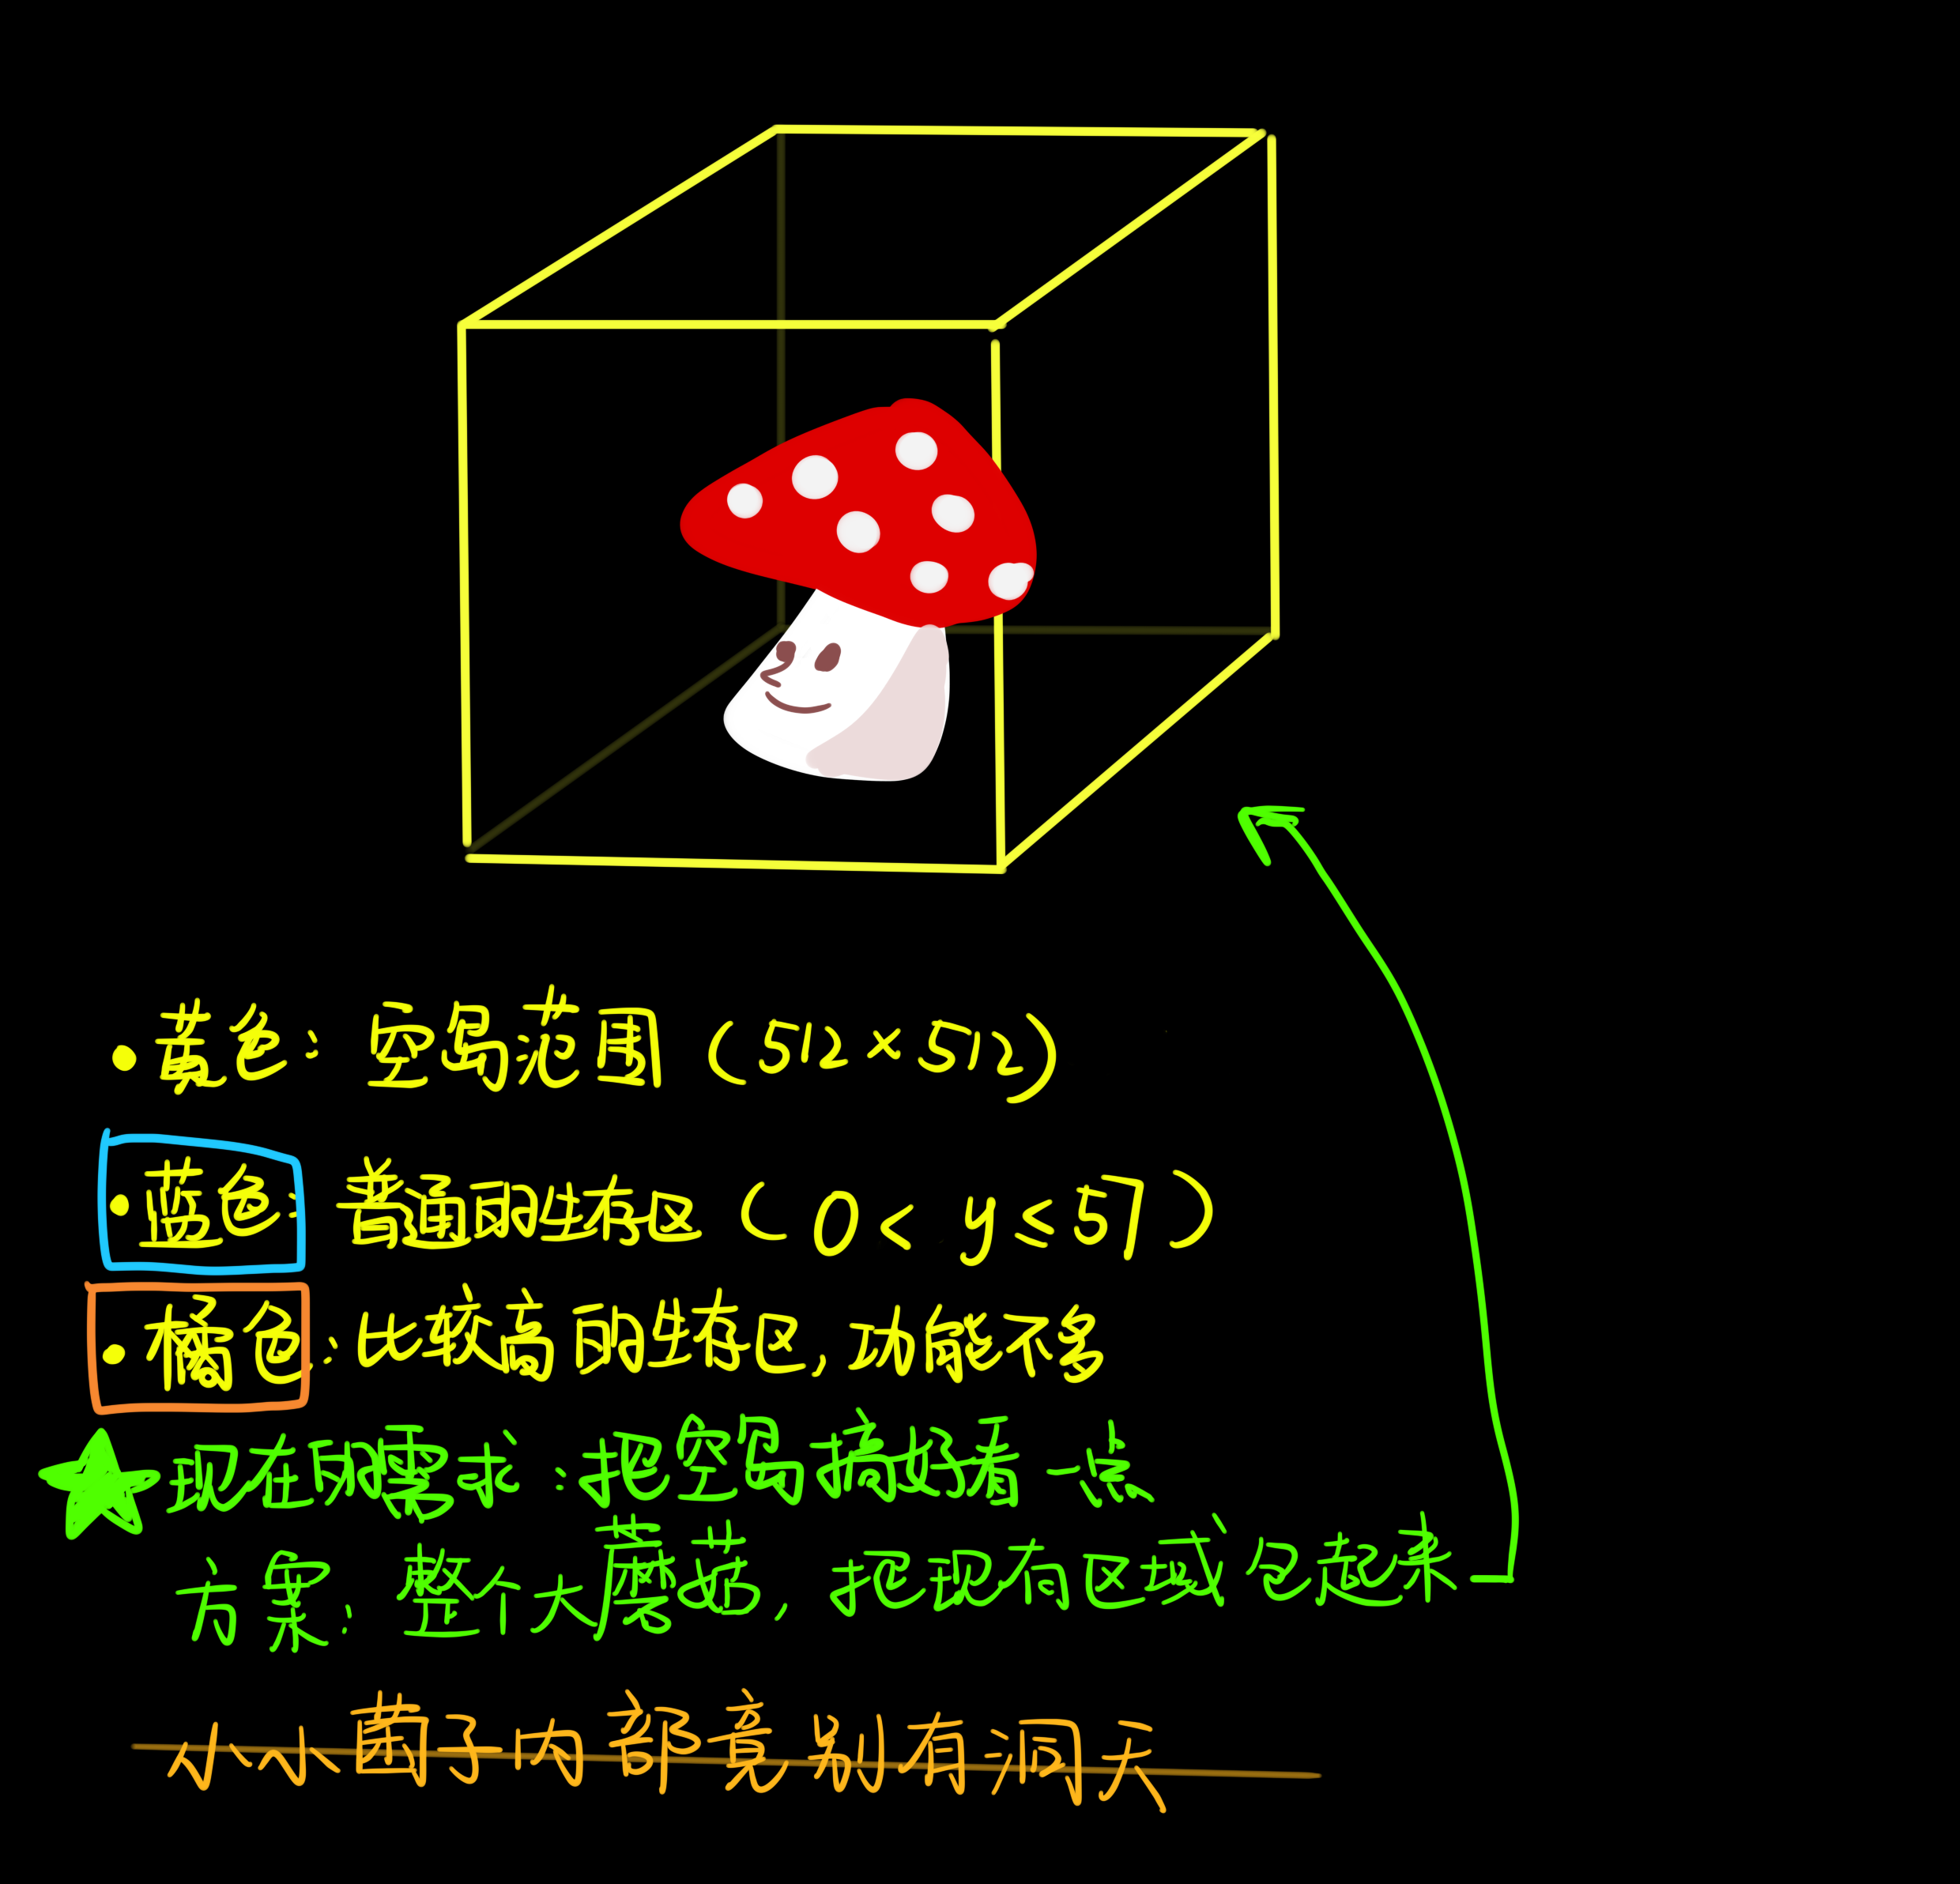 ·黄色：空岛范围（512×512）
·蓝色：普通刷怪生存区（0<y≤57）
·橘色：比较高的生存区，功能不多
现在的需求：把空岛搞好看一点
方案：整个大蘑菇，把现有区域包起来
小小菌子内部竟别有洞天